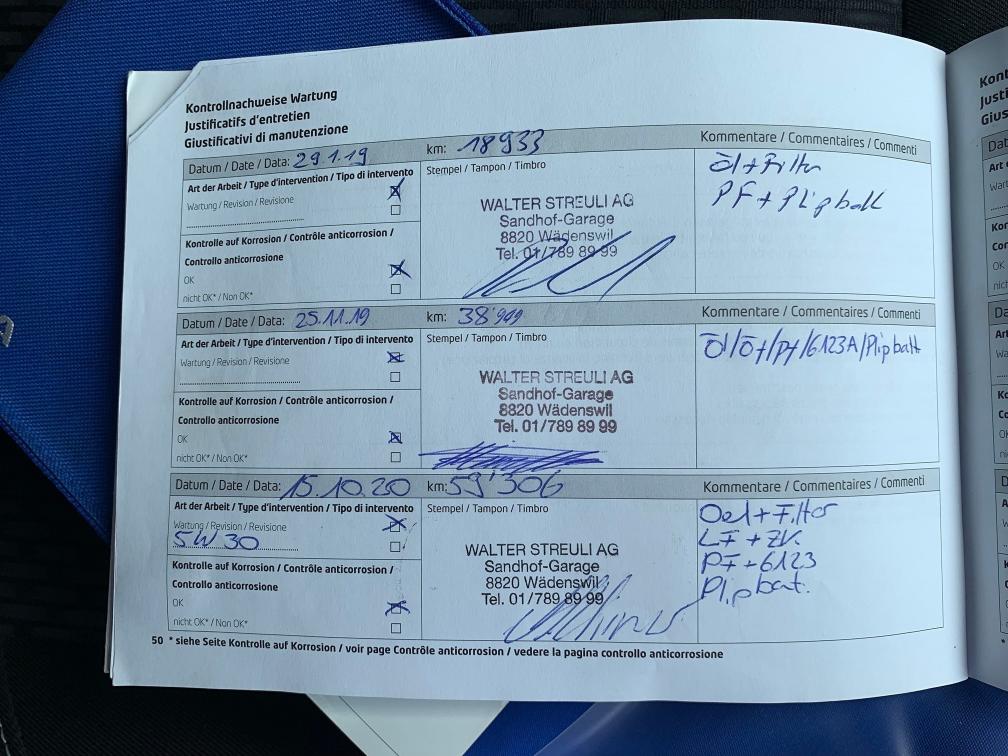 Kontrollnachweise Wartung
Justificatifs d'entretien
Giustificativi di manutenzione
Datum / Date / Data: 29.1.19 km: 18933 Kommentare / Commentaires / Commenti
Art der Arbeit / Type d'intervention / Tipo di intervento
Wartung / Revision / Revisione
Kontrolle auf Korrosion / Contrôle anticorrosion /
Controllo anticorrosione
OK
nicht OK* / Non OK*
Stempel / Tampon / Timbro
WALTER STREULI AG
Sandhof-Garage
8820 Wädenswil
Tel. 01/789 89 99
Öl + Filter
PF + Plipball
Datum / Date / Data: 25.11.19 km: 38'999 Kommentare / Commentaires / Commenti
Art der Arbeit / Type d'intervention / Tipo di intervento
Wartung / Revision / Revisione
Kontrolle auf Korrosion / Contrôle anticorrosion /
Controllo anticorrosione
OK
nicht OK* / Non OK*
Stempel / Tampon / Timbro
WALTER STREULI AG
Sandhof-Garage
8820 Wädenswil
Tel. 01/789 89 99
Öl/Öf/Pf/6123A/Plipbatt
Datum / Date / Data: 15.10.20 km: 59'306 Kommentare / Commentaires / Commenti
Art der Arbeit / Type d'intervention / Tipo di intervento
Wartung / Revision / Revisione
5W30
Kontrolle auf Korrosion / Contrôle anticorrosion /
Controllo anticorrosione
OK
nicht OK* / Non OK*
Stempel / Tampon / Timbro
WALTER STREULI AG
Sandhof-Garage
8820 Wädenswil
Tel. 01/789 89 99
Oel + Filter
LF + ZK
PF + 6123
Plipbat.
50 * siehe Seite Kontrolle auf Korrosion / voir page Contrôle anticorrosion / vedere la pagina controllo anticorrosione